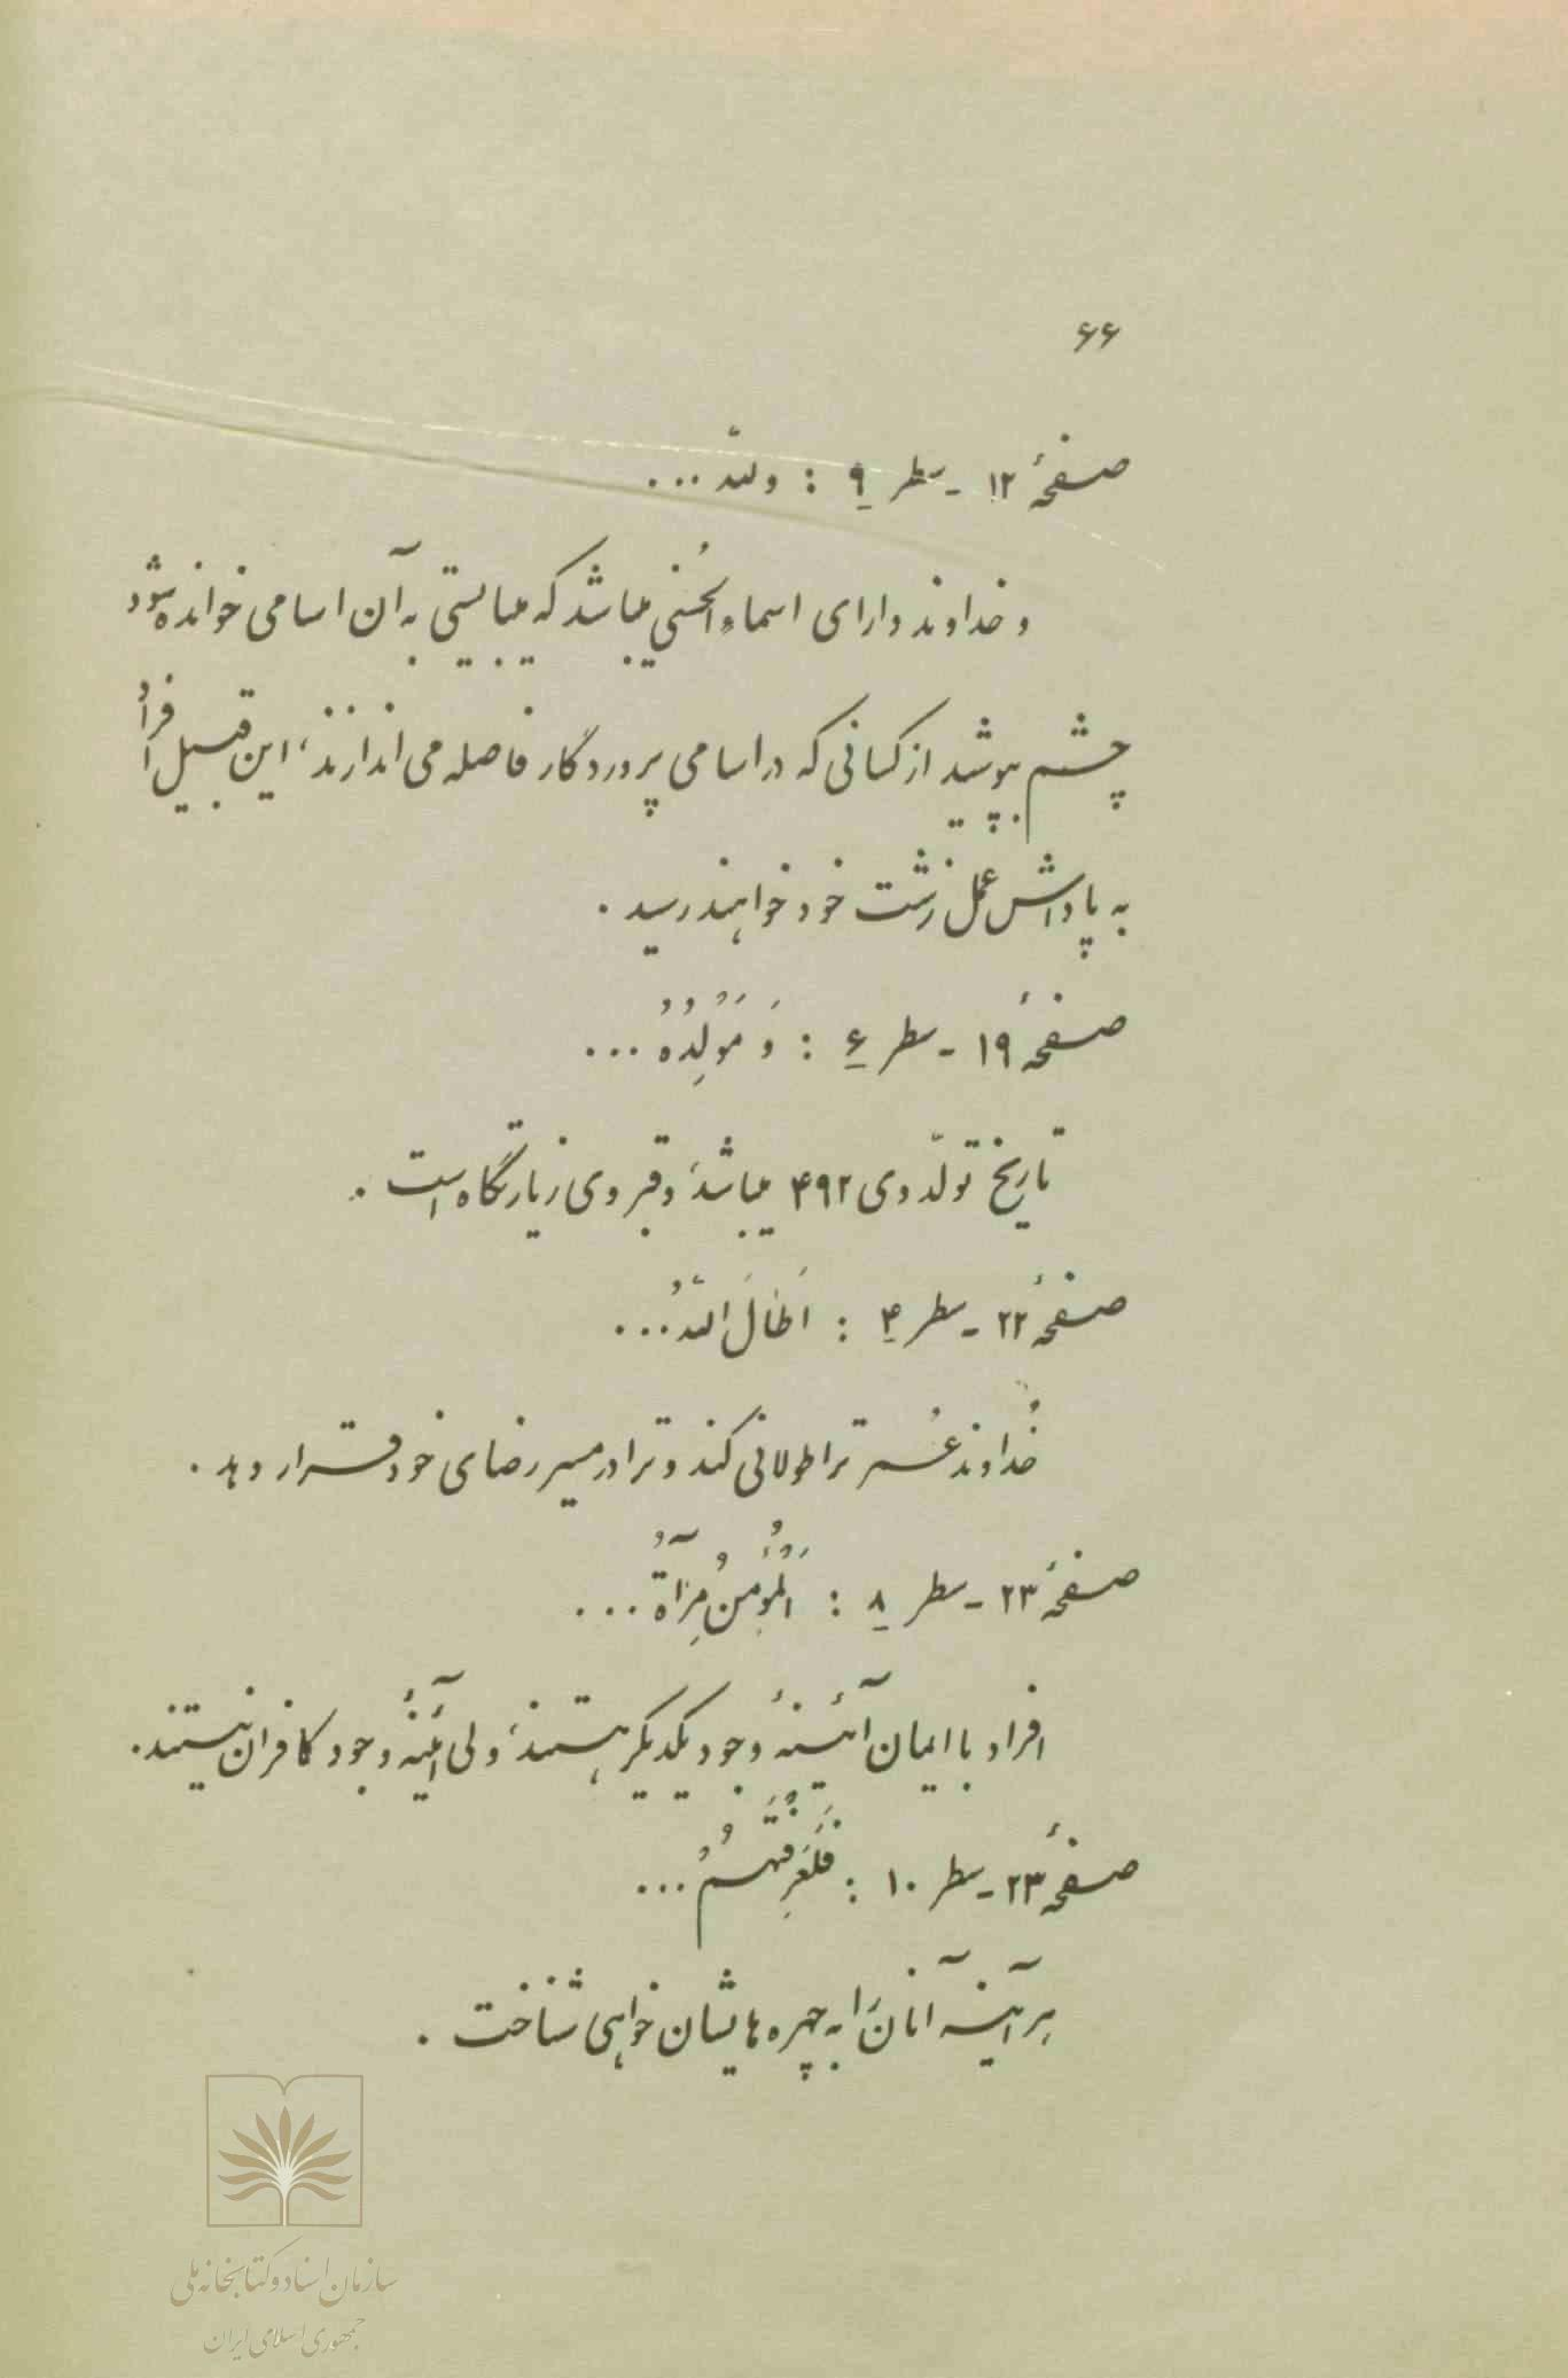 ۶۶
صفحهٔ ۱۲ - سطر ۹ : ولله ...
و خداوند دارای اسماءالحُسنی میباشد که میبایستی به آن اسامی خوانده شود
چشم بپوشید از کسانی که در اسامی پروردگار فاصله می اندازند، این قبیل افراد
به پاداش عمل زشت خود خواهند رسید .
صفحهٔ ۱۹ - سطر ۶ : وَ مَوْلِدُهُ ...
تاریخ تولّد وی ۴۹۲ میباشد، و قبر وی زیارتگاه است .
صفحهٔ ۲۲ - سطر ۴ : اَطٰالَ اللهُ ...
خُداوند عُمر ترا طولانی کند و ترا در مسیر رضای خود قرار دهد .
صفحهٔ ۲۳ - سطر ۸ : اَلْمُؤمِنُ مِرْآةُ ...
افراد با ایمان آئینهٔ وجود یکدیگر هستند، ولی آئینهٔ وجود کافران نیستند .
صفحهٔ ۲۳ - سطر ۱۰ : فَلَعَرِفْتَهُمْ ...
هر آینه آنان را به چهره هایشان خواهی شناخت .
سازمان اسناد و کتابخانه ملی
جمهوری اسلامی ایران